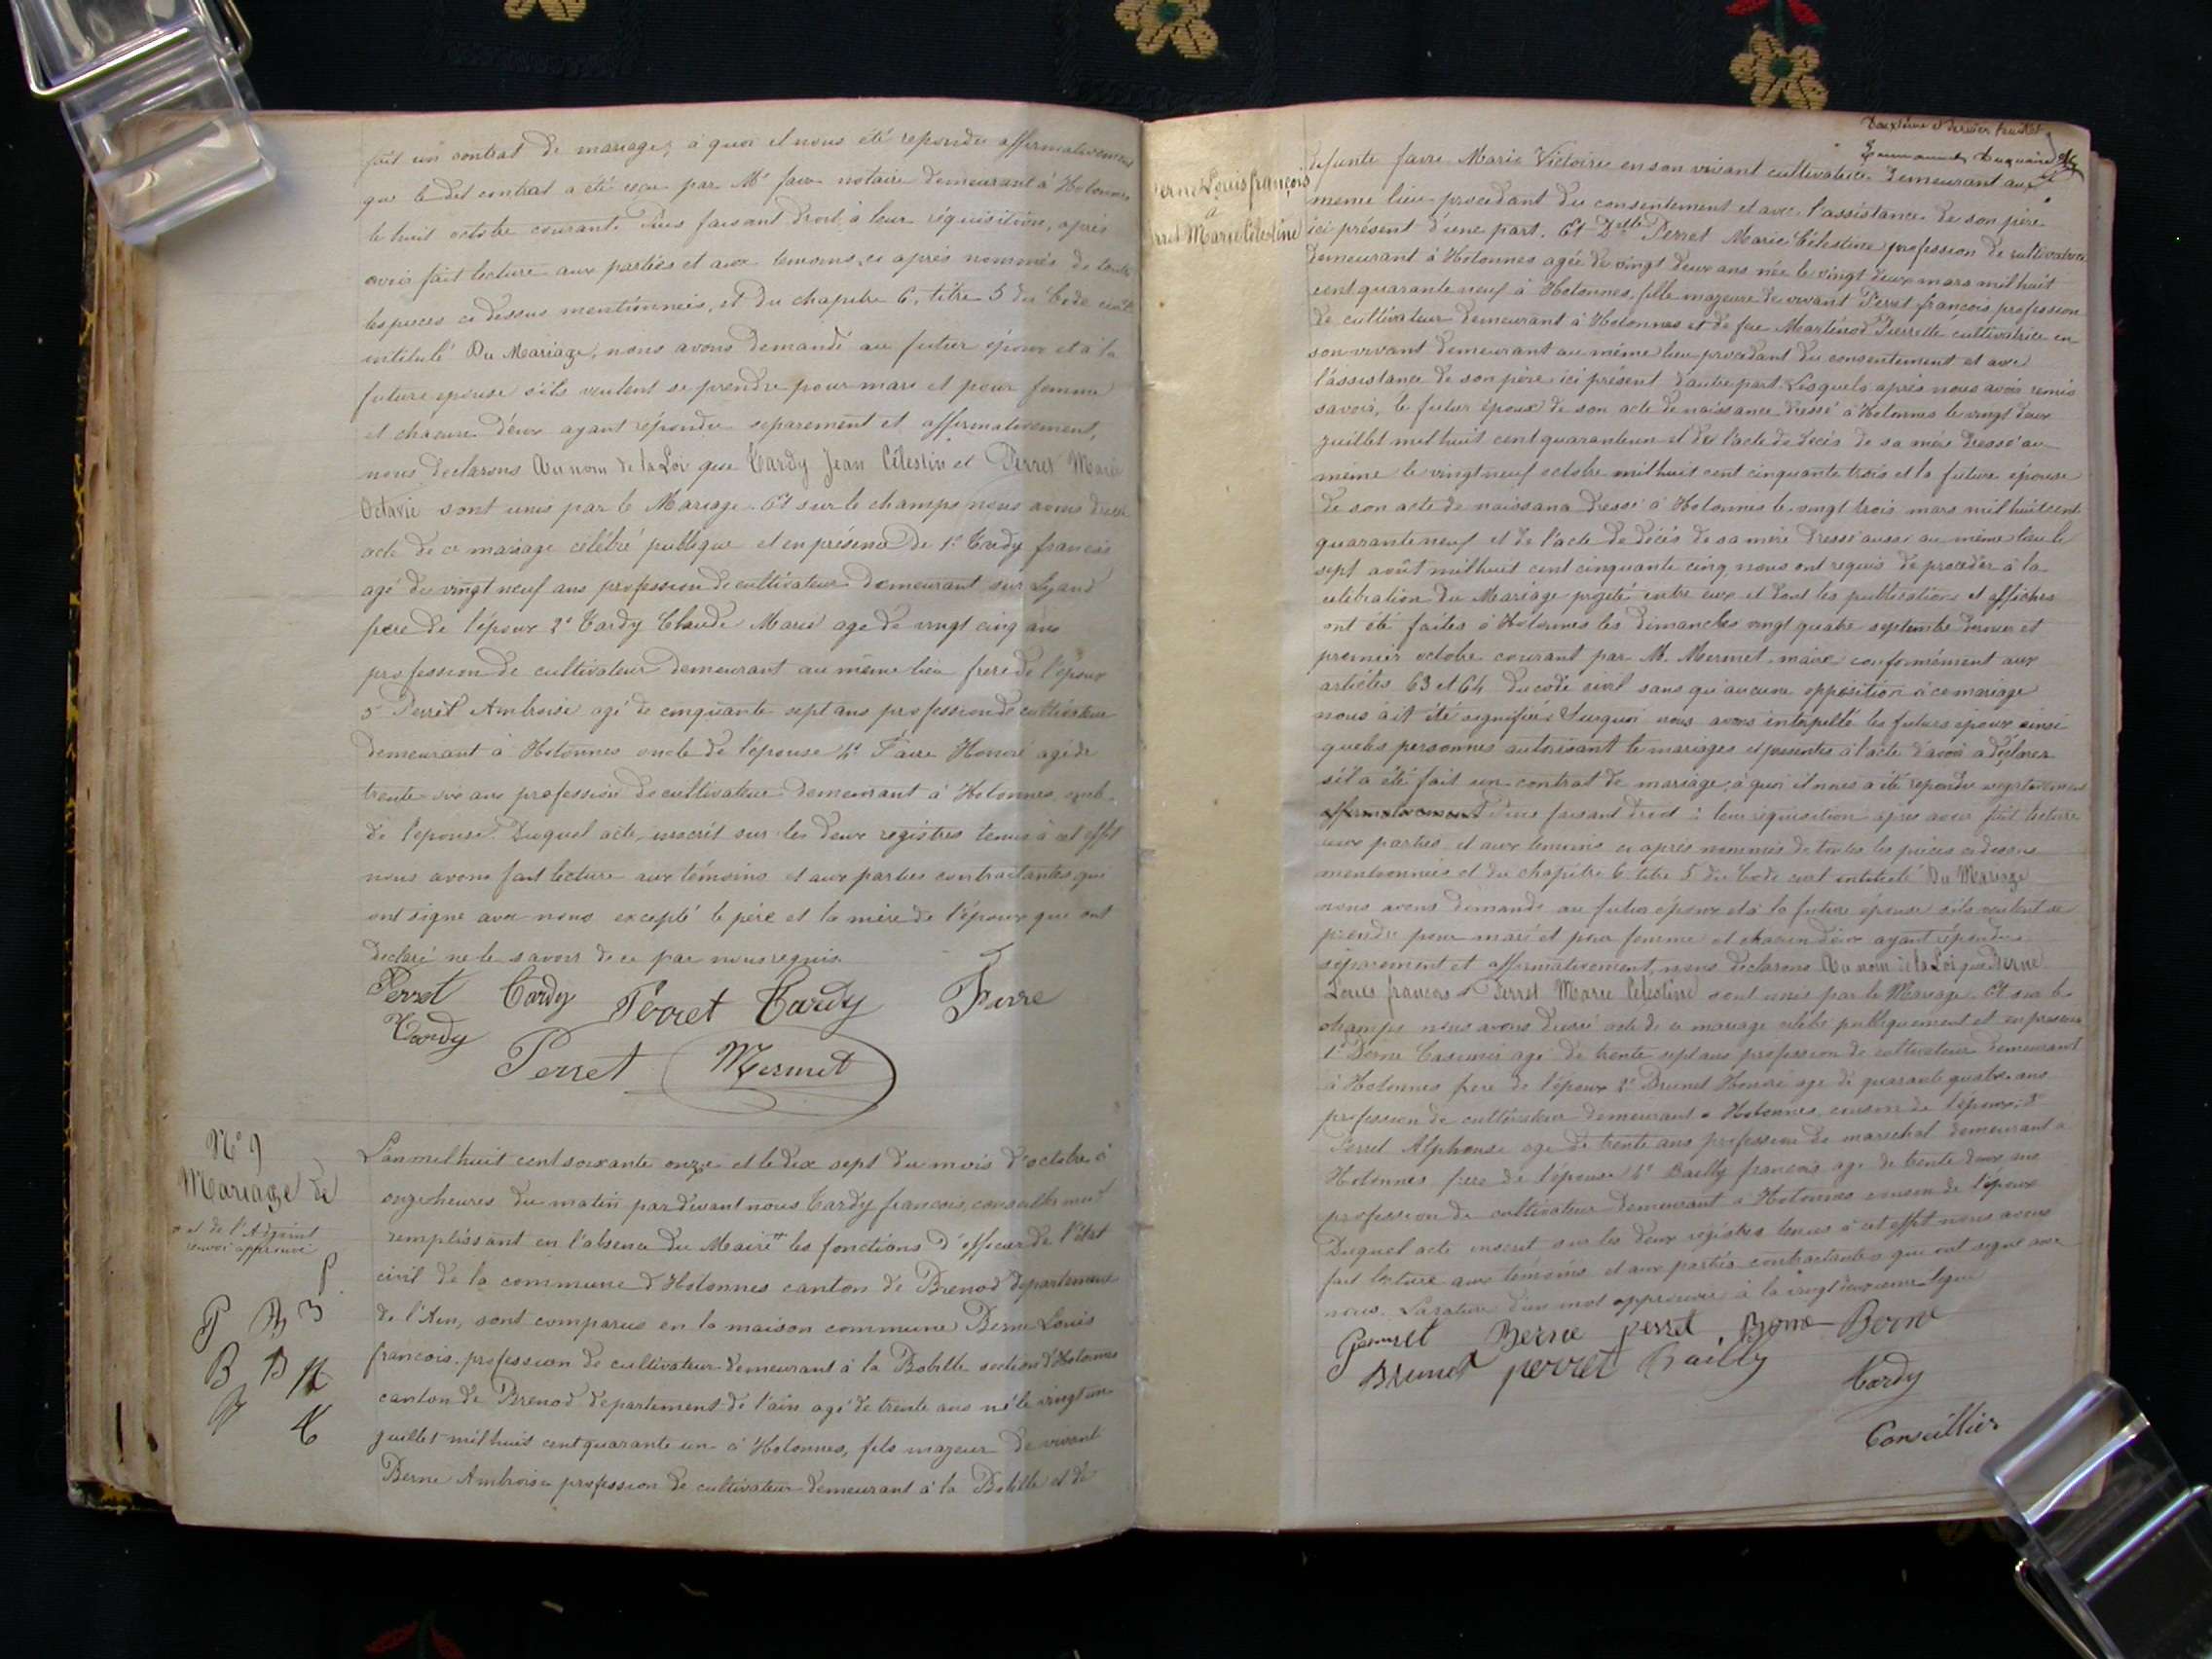 fait un contrat de mariage, à quoi il nous été repondu affirmativement
que le dit contrat a été reçu par Me faure notaire demeurant à Hotonnes
le huit octobre courant. Puis faisant droit à leur réquisition, après
avoir fait lecture aux parties et aux temoins ci après nommés de toutes
les pieces ci dessus mentionnées, et du chapitre 6, titre 5 du Code civil
intitulé Du Mariage, nous avons demandé au futur époux et à la
future epouse s'ils veulent se prendre pour mari et pour femme
et chacun d'eux ayant répondu separement et affirmativement,
nous declarons Au nom de la Loi que Tardy Jean Célestin et Perret Marie
Octavie sont unis par le Mariage. Et sur le champs nous avons dressé
acte de ce mariage célébré publique et en présence de 1° Tardy francois
agé de vingt neuf ans profession de cultivateur demeurant sur Lyand
frere de l'époux 2° Tardy Claude Marie age de vingt cinq ans
profession de cultivateur demeurant au même lieu frere de l'époux
3° Perret Ambroise agé de cinquante sept ans profession de cultivateur
demeurant à Hotonnes oncle de l'épouse 4° Favre Honoré agé de
trente six ans profession de cultivateur demeurant à Hotonnes
de l'epouse. Duquel acte inscrit sur les deux registres tenus à cet effet
nous avons fait lecture aux témoins et aux parties contractantes qui
ont signé avec nous excepté le père et la mère de l'époux qui ont
declaré ne le savoir de ce par nous requis.
Perret Tardy Perret Tardy Favre
Tardy
Perret Mermet
N° 9
Mariage de
et de l'Adjoint
renvoi approuvé
P
P B 3
B B
Berne Louis françois
à
Perret Marie Célestine
L'an mil huit cent soixante onze et le dix sept du mois d'octobre à
onze heures du matin par devant nous Tardy francois, conseiller
remplissant en l'absence du Maire les fonctions d'officier de l'état
civil de la commune d'Hotonnes canton de Brenod departement
de l'Ain, sont comparus en la maison commune Berne Louis
francois profession de cultivateur demeurant à la section d'Hotonnes
canton de Brenod departement de l'ain agé de trente ans né le vingt un
juillet mil huit cent quarante un à Hotonnes, fils majeur de vivant
Berne Ambroise profession de cultivateur demeurant à la et de
Deuxième et dernier feuillet
defunte favre Marie Victoire en son vivant cultivatrice demeurant au
meme lieu procedant du consentement et avec l'assistance de son père
ici présent d'une part. Et Delle Perret Marie Célestine profession de cultivatrice
demeurant à Hotonnes agée de vingt deux ans née le vingt deux mars mil huit
cent quarante neuf à Hotonnes, fille majeure de vivant Perret francois profession
de cultivateur demeurant à Hotonnes et de feue Martinod Pierrette cultivatrice en
son vivant demeurant au même lieu procedant du consentement et avec
l'assistance de son père ici présent d'autre part. Lesquels après nous avoir remis
savoir, le futur époux de son acte de naissance dressé à Hotonnes le vingt deux
juillet mil huit cent quarante un et de l'acte de décès de sa mère dressé au
même le vingt neuf octobre mil huit cent cinquante trois et la future épouse
de son acte de naissance dressé à Hotonnes le vingt trois mars mil huit cent
quarante neuf et de l'acte de décés de sa mère dressé aussi au même lieu le
sept août mil huit cent cinquante cinq, nous ont requis de procéder à la
celébration du Mariage projeté entre eux et dont les publications et affiches
ont été faites à Hotonnes les dimanches vingt quatre septembre dernier et
premier octobre courant par M. Mermet maire conformément aux
articles 63 et 64 du code civil sans qu'aucune opposition à ce mariage
nous ait été signifiée. Surquoi nous avons interpellé les futurs epoux ainsi
que les personnes autorisant le mariages et presentes à l'acte d'avoir a déclarer
s'il a été fait un contrat de mariage, à quoi il nous a été repondu negativement
affirmativement Puis faisant droit à leur réquisition après avoir fait lecture
aux parties et aux temoins ci après nommés de toutes les pièces ci dessus
mentionnées et du chapitre 6 titre 5 du Code civil intitulé Du Mariage
nous avons demandé au futur époux et à la future épouse s'ils veulent se
prendre pour mari et pour femme et chacun d'eux ayant répondu
séparement et affirmativement, nous déclarons Au nom de la Loi que Berne
Louis francois et Perret Marie Célestine sont unis par le Mariage. Et sur le
champs nous avons dressé acte de ce mariage célébré publiquement et en presence
1° Berne Casimir agé de trente sept ans profession de cultivateur demeurant
à Hotonnes frere de l'époux 2° Brunet Honoré age de quarante quatre ans
profession de cultivateur demeurant à Hotonnes cousin de l'époux 3°
Perret Alphonse age de trente ans profession de marechal demeurant à
Hotonnes frere de l'épouse 4° Bailly francois age de trente deux ans
profession de cultivateur demeurant à Hotonnes cousin de l'époux
Duquel acte inscrit sur les deux régistres tenus à cet effet nous avons
fait lecture aux témoins et aux parties contractantes qui ont signé avec
nous. La rature d'un mot approuvée à la vingt deuxieme ligne
Perret Berne perret Berne Berne
Brunet perret Bailly
Tardy
Conseillier